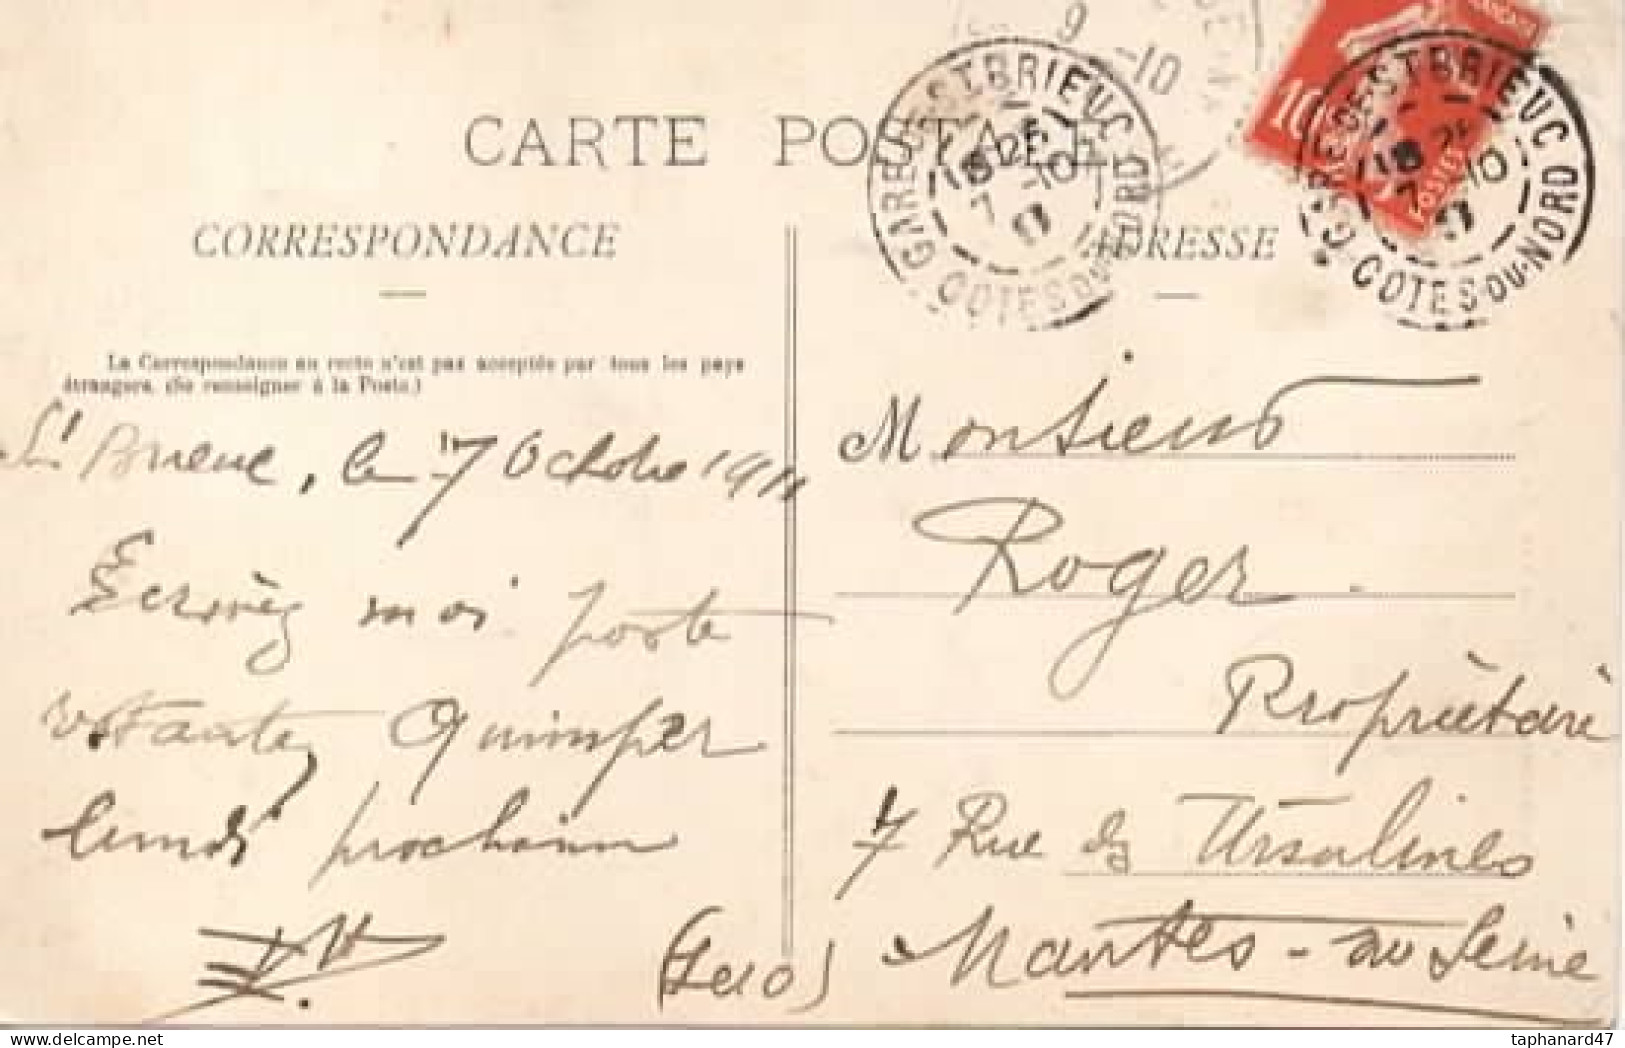 CARTE POSTALE
CORRESPONDANCE
La Correspondance au recto n'est pas acceptée par tous les pays
étrangers. (Se renseigner à la Poste.)
St Brieuc, le 7 Octobre 1911
Ecrivèz moi poste
restante, Quimper
lundi prochain
9 -10
GARE DE ST BRIEUC
COTES DU NORD
18
7 -10
11
10
POSTES
GARE DE ST BRIEUC
COTES DU NORD
18
7 10
11
ADRESSE
Monsieur
Roger
Propriètaire
7 Rue des Ursulines
Mantes - su Seine
taphanard47